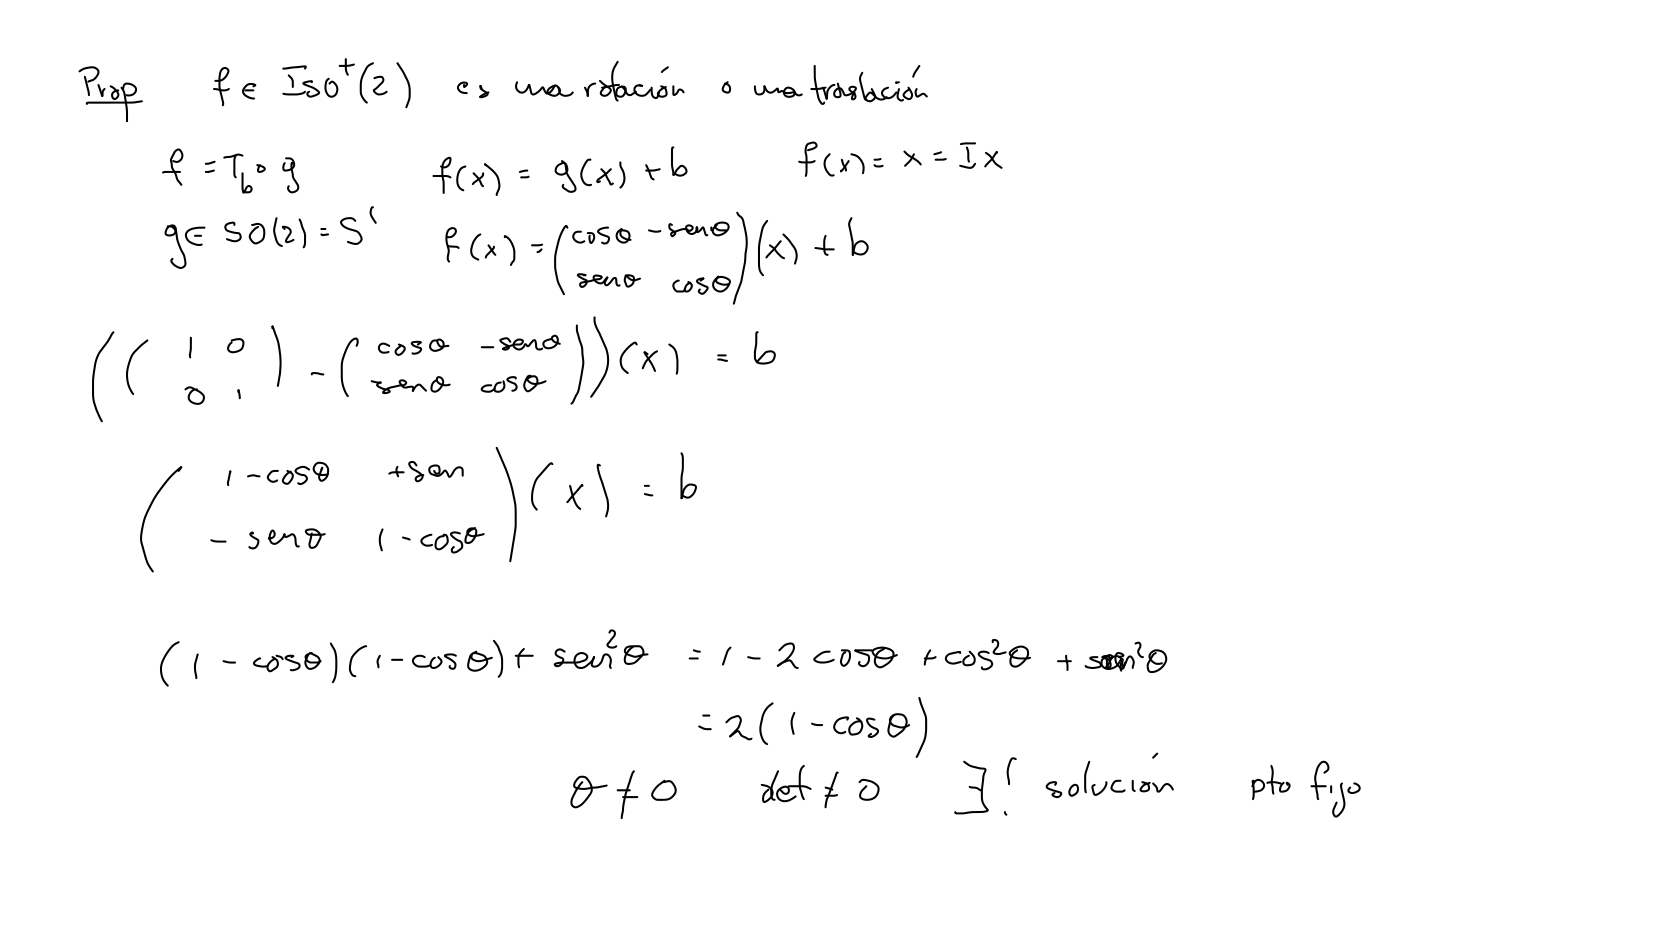 Prop f ∈ Iso⁺(2) es una rotación o una traslación
f = T_b ∘ g f(x) = g(x) + b f(x) = x = Ix
g ∈ SO(2) = S¹ f(x) = (cosθ -senθ
senθ cosθ)(x) + b
((1 0
0 1) - (cosθ -senθ
senθ cosθ))(x) = b
(1-cosθ +sen
-senθ 1-cosθ)(x) = b
(1 - cosθ)(1-cosθ) + sen²θ = 1 - 2 cosθ + cos²θ + sen²θ
= 2(1 - cosθ)
θ ≠ 0 det ≠ 0 ∃! solución pto fijo